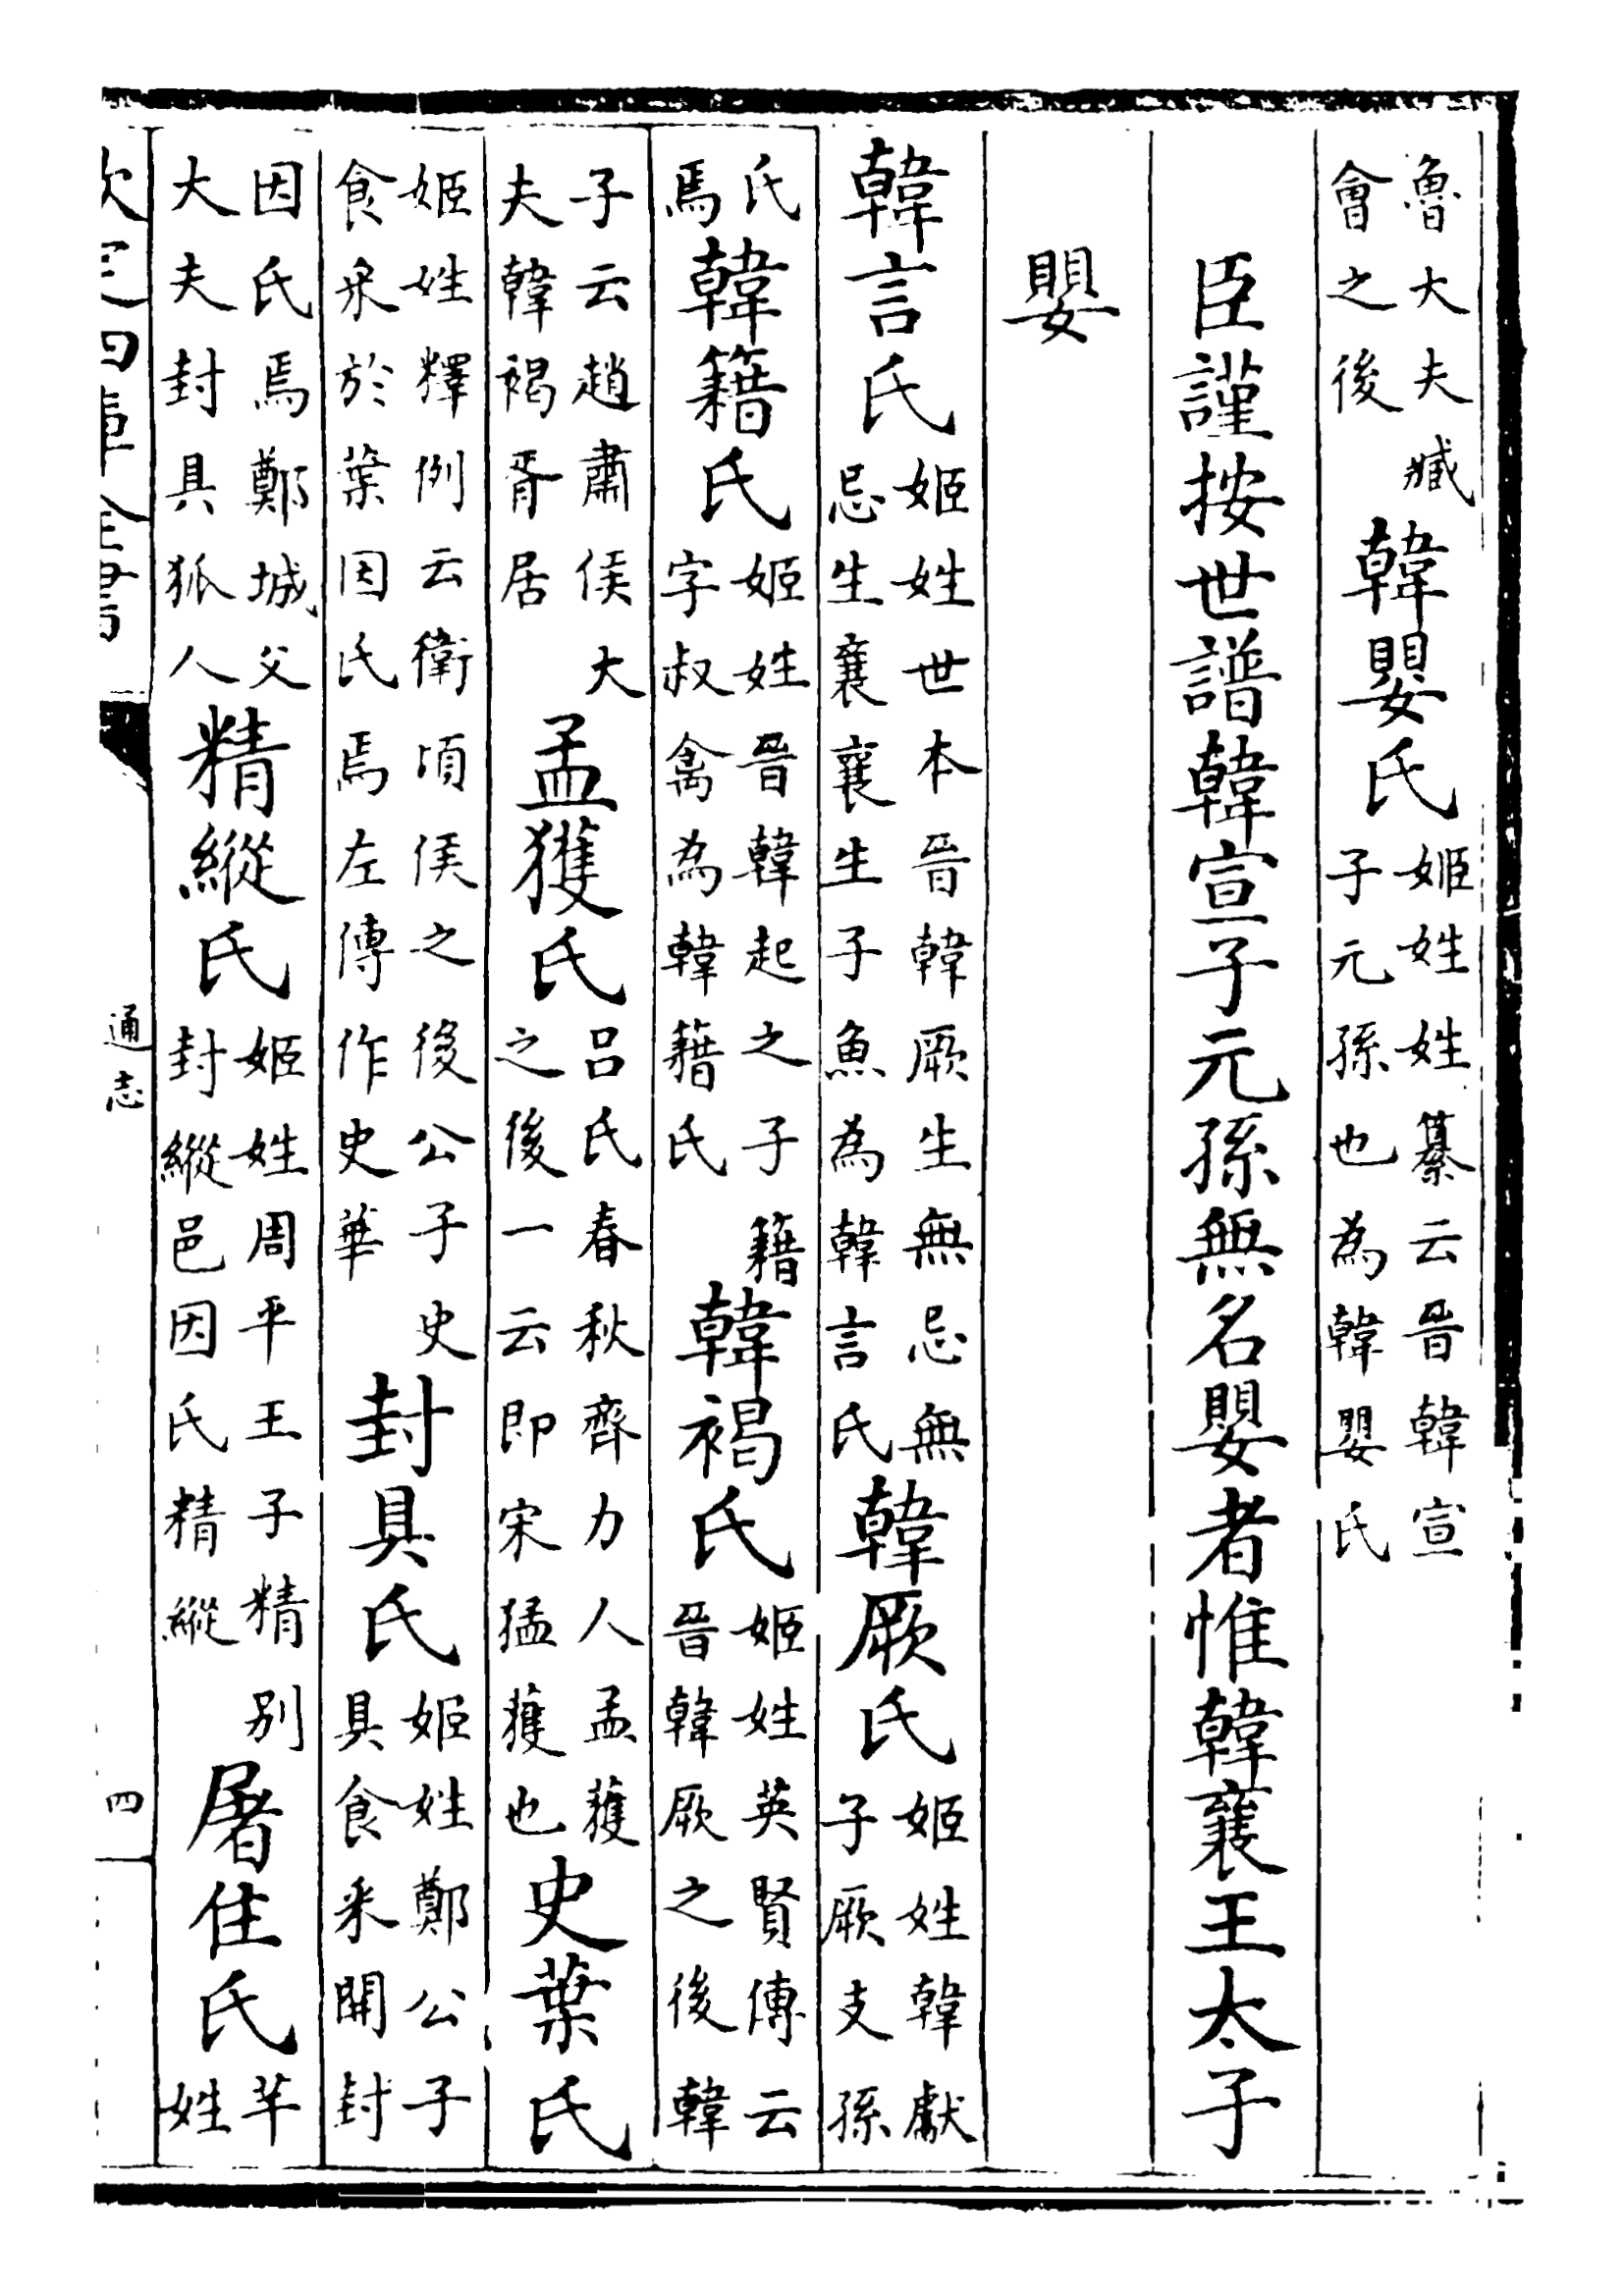 魯大夫臧會之後韓嬰氏姬姓姓纂云晉韓宣子元孫也為韓嬰氏
臣謹按世譜韓宣子元孫無名嬰者惟韓襄王太子
嬰
韓言氏姬姓世本晉韓厥生無忌無忌生襄襄生子魚為韓言氏韓厥氏姬姓韓獻子厥支孫
氏焉韓籍氏姬姓晉韓起之子籍字叔禽為韓籍氏韓褐氏姬姓英賢傳云晉韓厥之後韓
子云趙肅侯大夫韓褐胥居孟獲氏呂氏春秋齊力人孟獲之後一云即宋猛獲也史葉氏
姬姓釋例云衛頃侯之後公子史食采於葉因氏焉左傳作史華封具氏姬姓鄭公子具食采開封
因氏焉鄭城父大夫封具狐人精縱氏姬姓周平王子精別封縱邑因氏精縱屠住氏芊姓
欽定四庫全書
通志
四